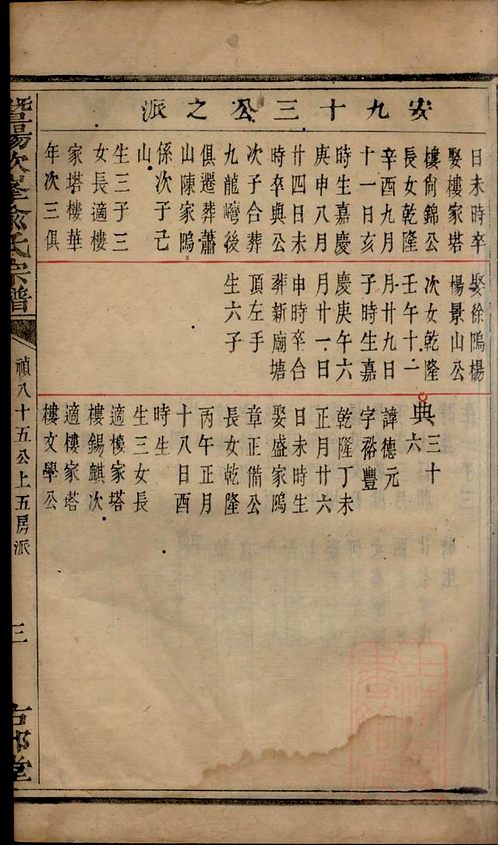 安九十三公之派
日未時卒
娶樓家塔
樓尙錦公
長女乾隆
辛酉九月
十一日亥
時生嘉慶
庚申八月
廿四日未
時卒與公
次子合葬
九龍後
俱遷葬蕭
山陳家塢
係次子己
山
生三子三
女長適樓
家塔樓華
年次三俱
娶徐塢楊
楊景山公
次女乾隆
壬午十一
月廿九日
子時生嘉
慶庚午六
月廿一日
申時卒合
葬新廟塘
頂左手
生六子
典三十
六
諱德元
字裕豐
乾隆丁未
正月廿六
日未時生
娶盛家塢
章正備公
長女乾隆
丙午正月
十八日酉
時生
生三女長
適樓家塔
樓錫麒次
適樓家塔
樓文學公
暨陽次峯俞氏宗譜
禎八十五公上五房派
三